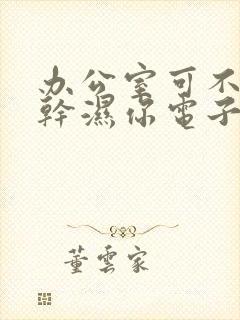 办公室可不
幹濕你電子
董雲家